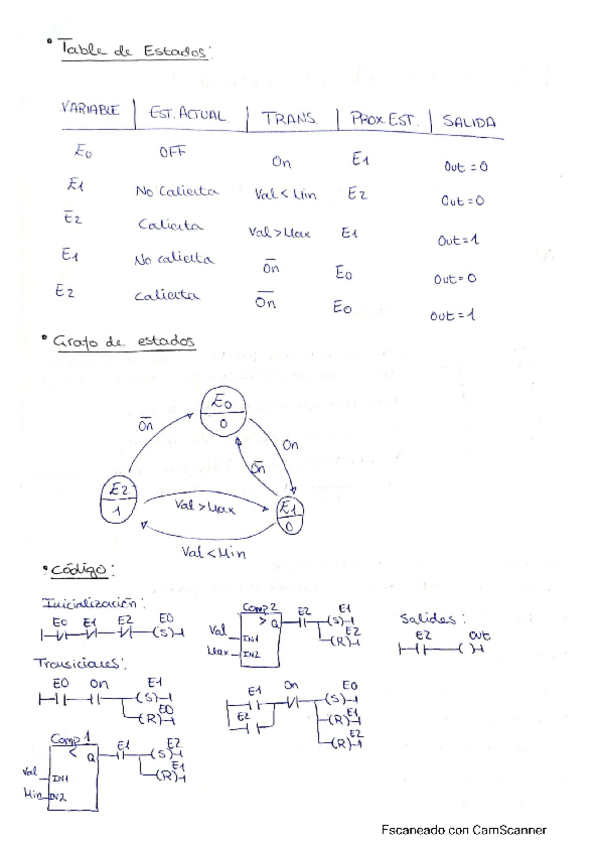 • Table de Estados:
VARIABLE | EST. ACTUAL | TRANS. | PROX EST. | SALIDA
E0 OFF On E1 Out = 0
E1 No Calienta Val < Min E2 Out = 0
E2 Calienta Val > Max E1 Out = 1
E1 No calienta O̅n̅ E0 Out = 0
E2 Calienta O̅n̅ E0 Out = 1
• Grafo de estados
E0
0
O̅n̅
On
O̅n̅
E2
1
Val > Max
E1
0
Val < Min
• Código:
Inicialización:
E0 E1 E2 E0
(S)
Comp 2
> Q
Val IN1
Max IN2
E2 E1
(S)
E2
(R)
Salidas:
E2 Out
( )
Transiciones:
E0 On E1
(S)
E0
(R)
E1 On E0
(S)
E2 E1
(R)
E2
(R)
Comp 1
< Q
Val IN1
Min IN2
E1 E2
(S)
E1
(R)
Escaneado con CamScanner